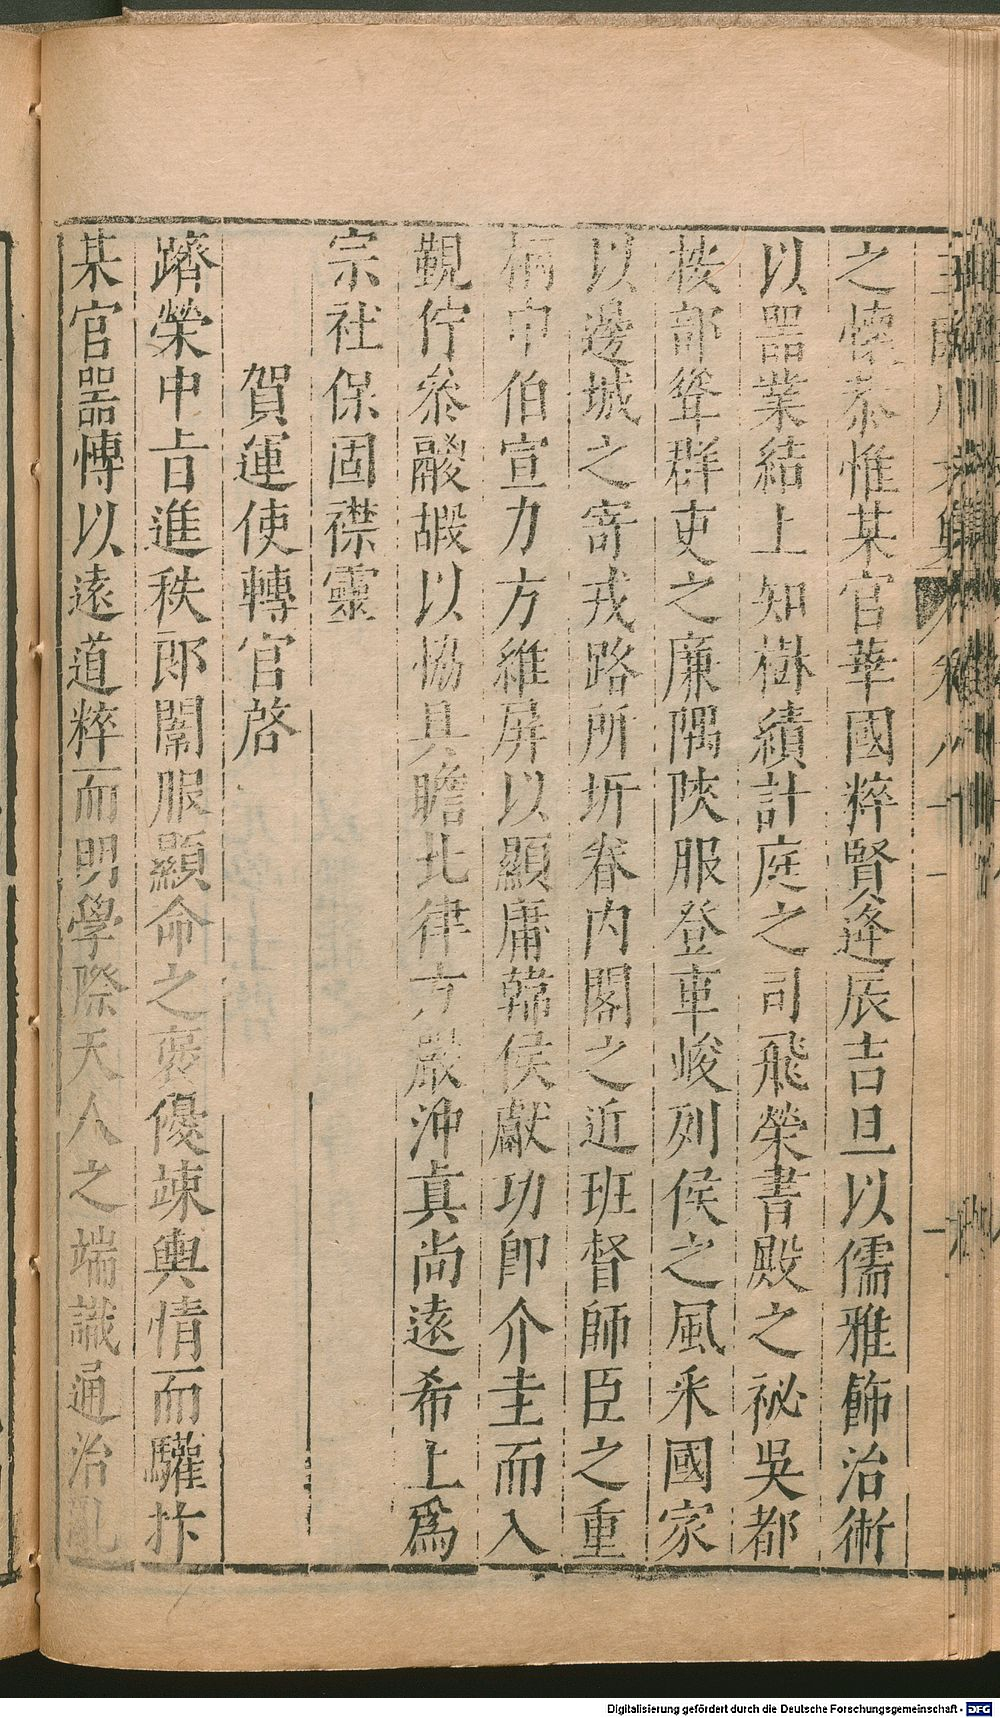 之懷恭惟某官華國粹賢逢辰吉旦以儒雅飾治術
以器業結上知樹績計庭之司飛榮書殿之祕吳都
按部聳群吏之廉隅陜服登車峻列侯之風采國家
以邊城之寄戎路所圻眷內閣之近班督師臣之重
柄申伯宣力方維屏以顯庸韓侯獻功卽介圭而入
覲佇叅嘏以協具瞻北律方嚴沖真尚遠希上為
宗社保固襟靈
賀運使轉官啓
躋榮中㫖進秩郎闈服顯命之褒優竦輿情而驩抃
某官器慱以遠道粹而明學際天人之端識通治亂
Digitalisierung gefördert durch die Deutsche Forschungsgemeinschaft - DFG